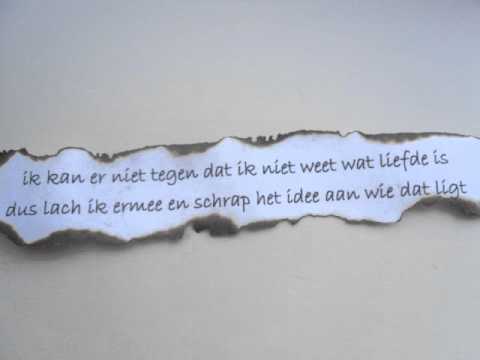 ik kan er niet tegen dat ik niet weet wat liefde is
dus lach ik ermee en schrap het idee aan wie dat ligt